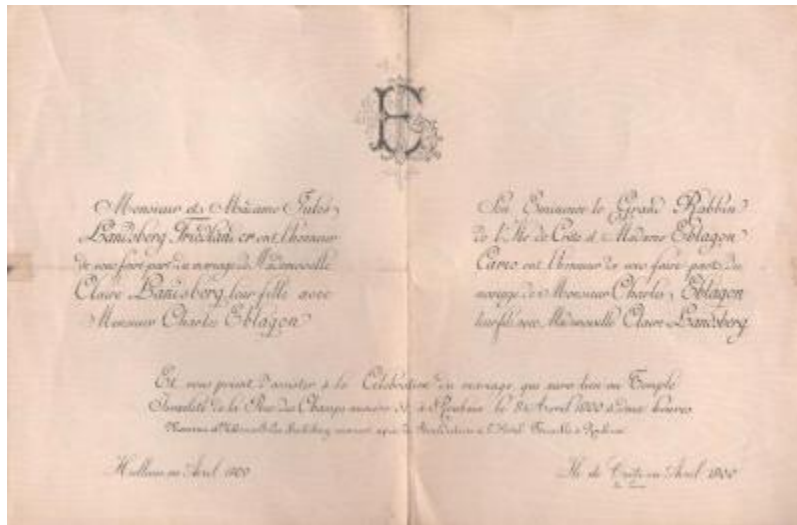 E
Monsieur et Madame Jules
Landsberg Friedlander ont l'honneur
de vous faire part du mariage de Mademoiselle
Claire Landsberg, leur fille avec
Monsieur Charles Eblagon
Son Eminence le Grand Rabbin
de l'Ile de Crète et Madame Eblagon
ont l'honneur de vous faire part du
mariage de Monsieur Charles Eblagon
leur fils avec Mademoiselle Claire Landsberg
Et vous prient d'assister à la Célébration du mariage, qui aura lieu au Temple
Israélite de la Rue des Champs à Roubaix le Avril 1900 à deux heures
Monsieur et Madame Jules Landsberg
Halluin en Avril 1900
Ile de Crète en Avril 1900